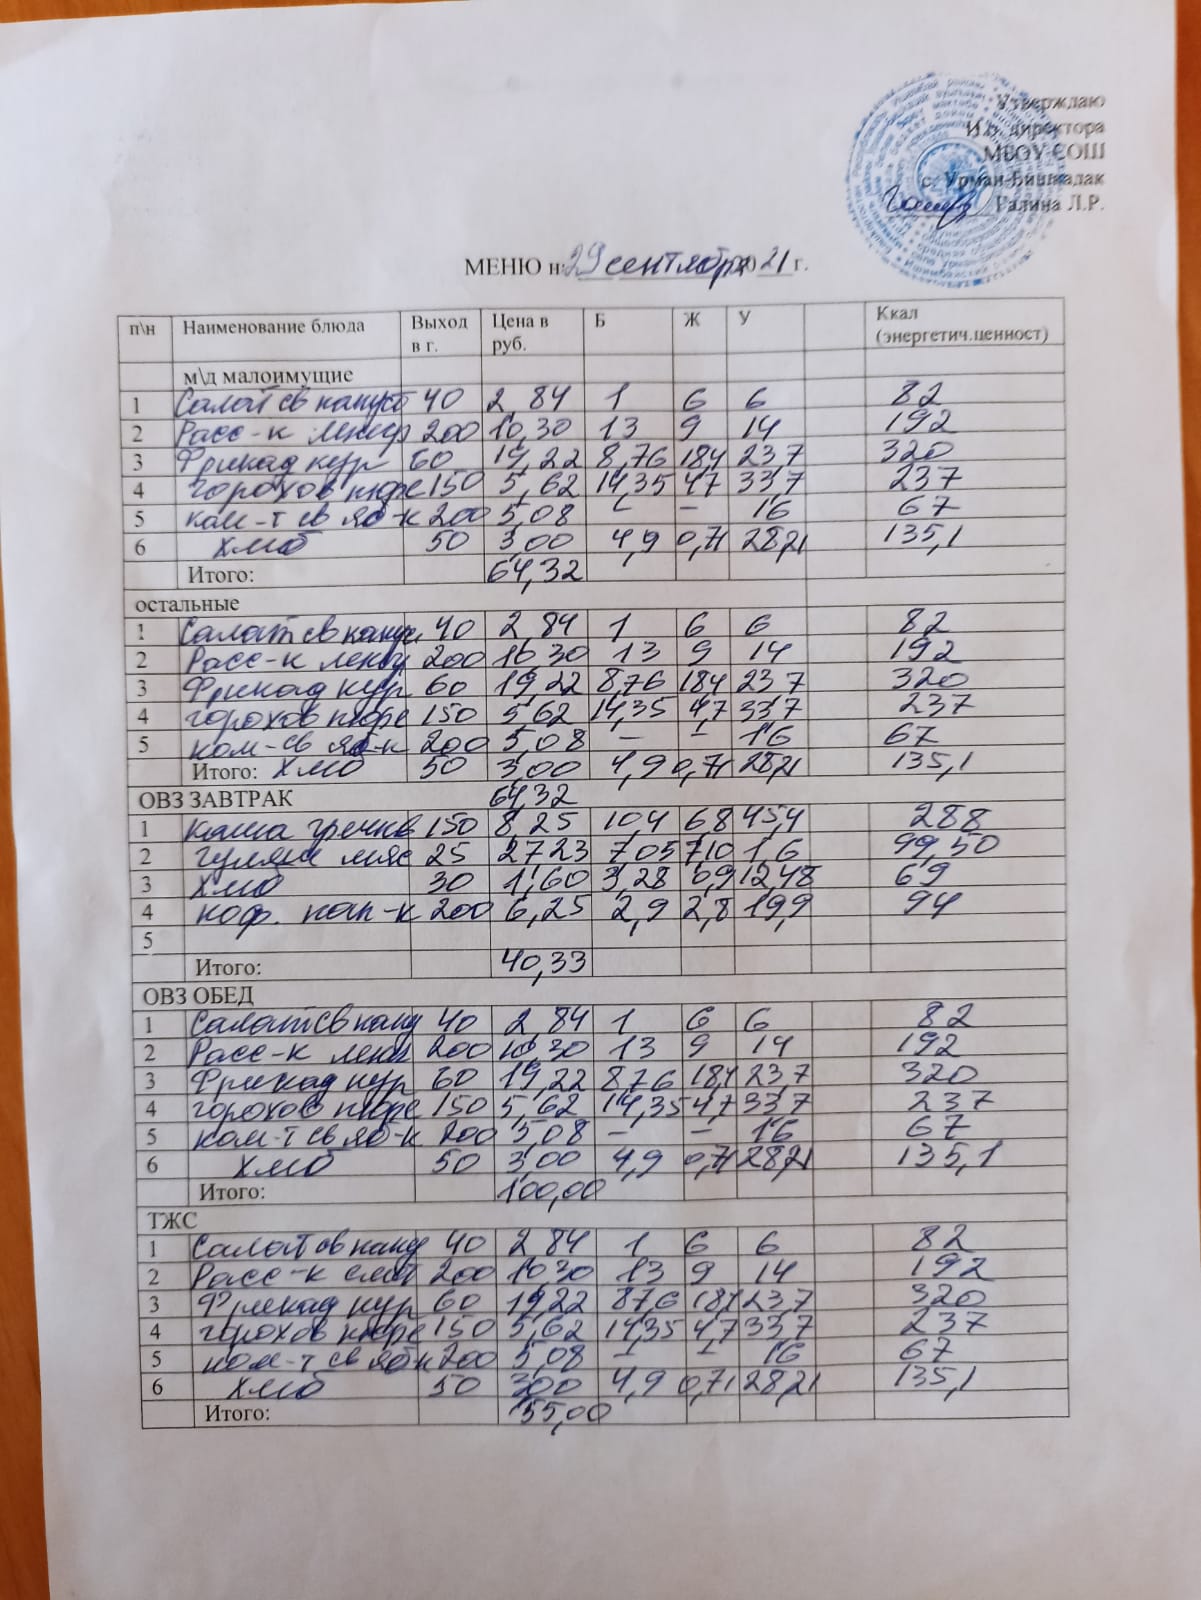 Утверждаю
И.о. директора
МБОУ СОШ
с. Урман-Бишкадак
Галина Л.Р.
МЕНЮ н 29 сентября 2021 г.
п\н Наименование блюда Выход в г. Цена в руб. Б Ж У Ккал (энергетич.ценност)
м\д малоимущие
1 Салат св капуст 40 2 84 1 6 6 82
2 Расс-к ленигр 200 10,30 13 9 14 192
3 Фрикад кур 60 19,22 8,76 18,4 23,7 320
4 горохов пюре 150 5,62 14,35 4,7 33,7 237
5 ком-т св яб-к 200 5,08 - - 16 67
6 ХМб 50 3,00 4,9 0,71 28,21 135,1
Итого: 64,32
остальные
1 Салат св капус 40 2,84 1 6 6 82
2 Расс-к лениг 200 10 30 13 9 14 192
3 Фрикад кур 60 19,22 8,76 18,4 23,7 320
4 горохов пюре 150 5,62 14,35 4,7 33,7 237
5 ком-св яб-к 200 5,08 - - 16 67
Итого: ХМб 50 3,00 4,9 0,71 28,21 135,1
64,32
ОВЗ ЗАВТРАК
1 каша гречнев 150 8,25 10,4 6,8 45,4 288
2 гуляш мяс 25 27 23 7,05 7,10 1,6 99,50
3 ХМб 30 1,60 3,28 0,9 12,48 69
4 коф. нап-к 200 6,25 2,9 2,8 19,9 94
5
Итого: 40,33
ОВЗ ОБЕД
1 Салат св капу 40 2,84 1 6 6 82
2 Расс-к лени 200 10,30 13 9 14 192
3 Фрикад кур 60 19,22 8,76 18,4 23,7 320
4 горохов пюре 150 5,62 14,35 4,7 33,7 237
5 ком-т св яб-к 200 5,08 - - 16 67
6 ХМб 50 3,00 4,9 0,71 28,21 135,1
Итого: 100,00
ТЖС
1 Салат св капу 40 2 84 1 6 6 82
2 Расс-к 200 10 30 13 9 14 192
3 Фрикад кур 60 19,22 8,76 18,4 23,7 320
4 горохов пюре 150 5,62 14,35 4,7 33,7 237
5 ком-т св яб к 200 5,08 - - 16 67
6 ХМб 50 3 00 4,9 0,71 28,21 135,1
Итого: 155,00